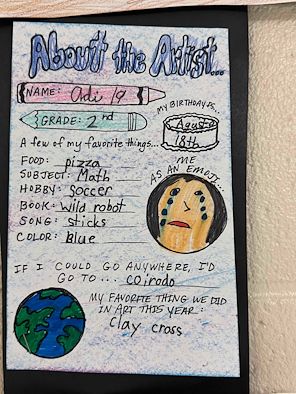 About the Artist...
NAME: Adi 19
GRADE: 2nd
MY BIRTHDAY IS...
Agust
18th
A few of my favorite things...
FOOD: pizza
SUBJECT: Math
HOBBY: soccer
BOOK: wild robot
SONG: sticks
COLOR: Blue
ME
AS AN EMOJI...
IF I COULD GO ANYWHERE, I'D
GO TO... colrodo
MY FAVORITE THING WE DID
IN ART THIS YEAR:
Clay cross